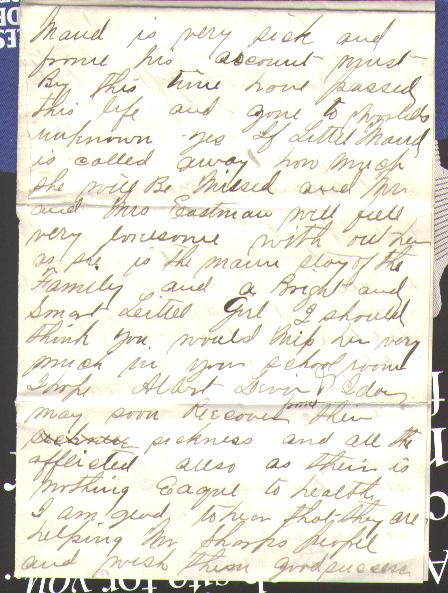 Maud is very sick and
from his account must
By this time have passed
this life and gone to
unknown yes if Littel Maud
is called away how much
she will Be Missed and Mr
and Mrs Eastman will feel
very lonesome with out her
as she is the main stay of the
Family and a Bright and
Smart Leittel Girl I should
think you would miss her very
much in your school room
I hope Albert &
may soon Reccover from their
sickness and all the
afflicted allso as their is
nothing Eaquel to health
I am glad to hear that they are
helping Mr Sharps People
and wish them good success